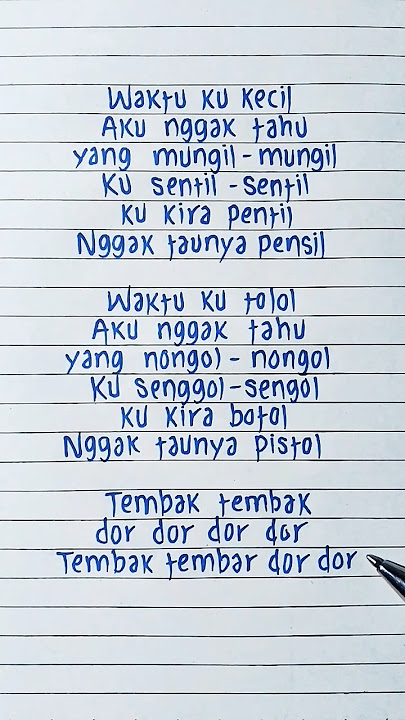 Waktu ku kecil
Aku nggak tahu
yang mungil - mungil
Ku sentil - sentil
Ku kira pentil
Nggak taunya pensil
Waktu ku tolol
Aku nggak tahu
yang nongol - nongol
Ku senggol - sengol
Ku kira botol
Nggak taunya pistol
Tembak tembak
dor dor dor dor
Tembak tembar dor dor